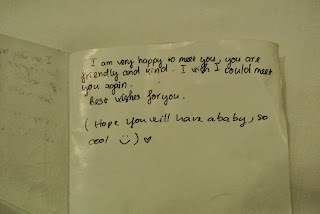 I am very happy to meet you, you are
friendly and kind. I wish I could meet
you again.
Best wishes for you.
(Hope you will have a baby, so
cool :) ) ♥